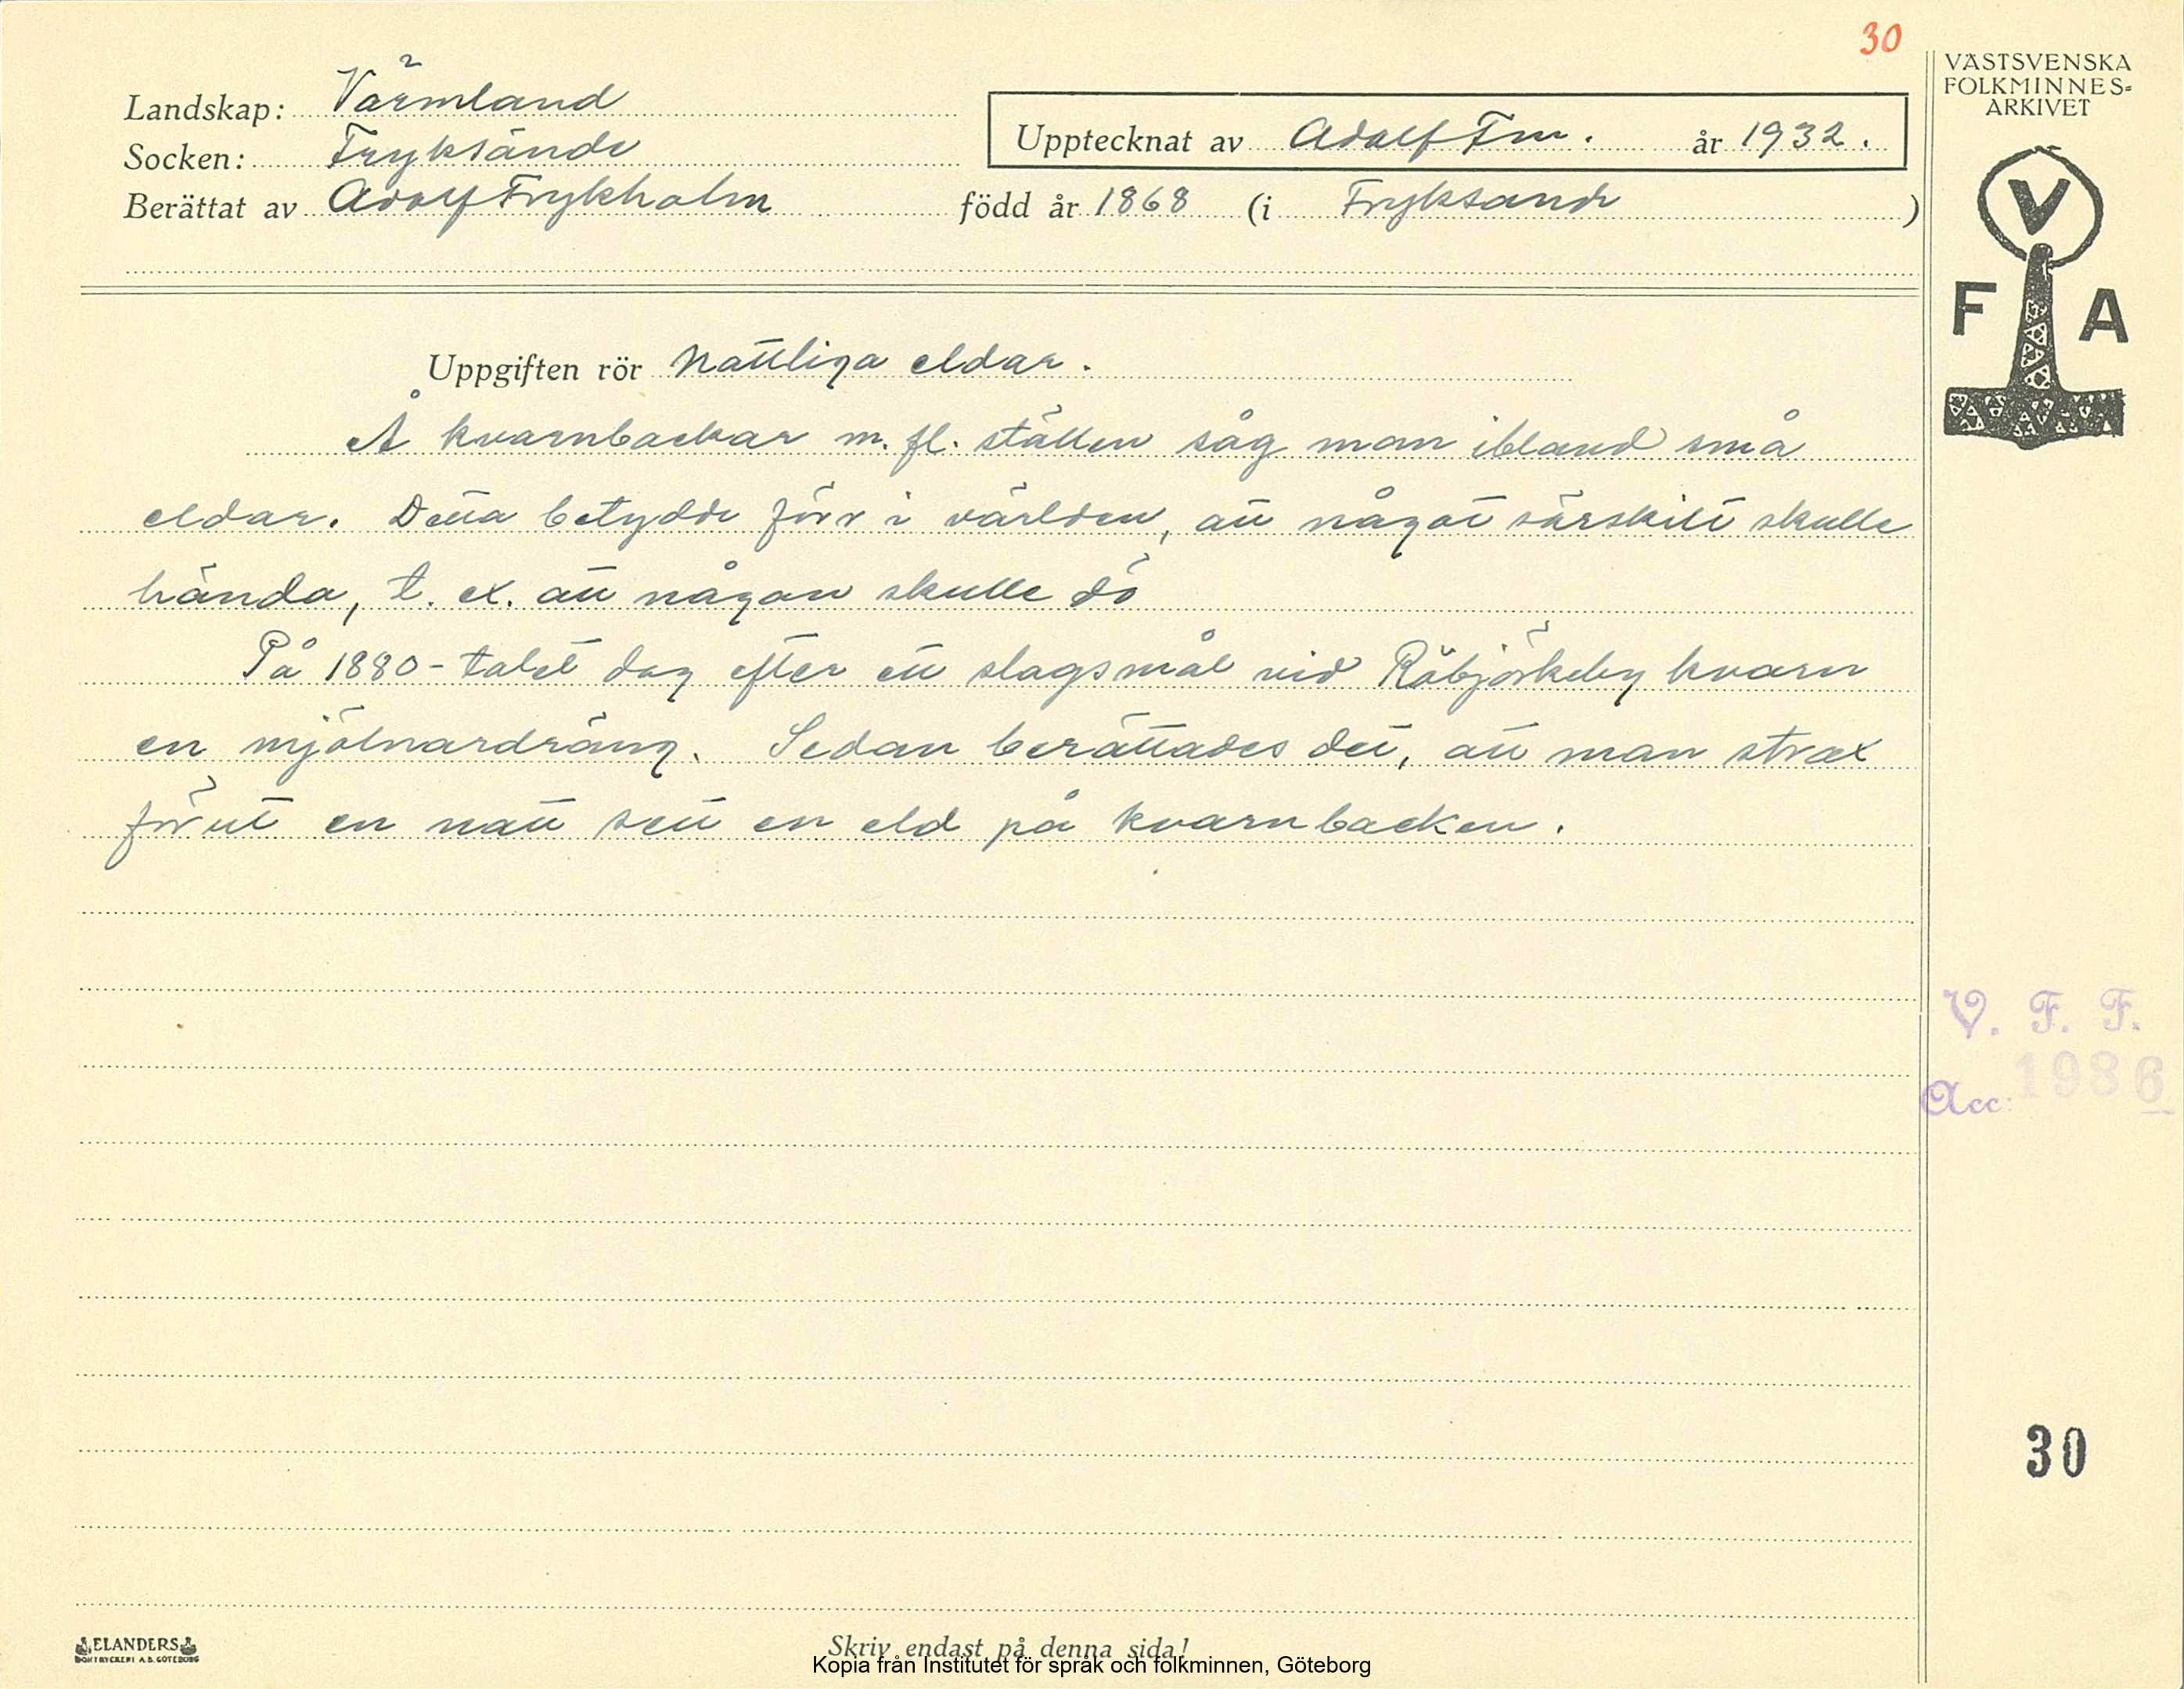 30
VÄSTSVENSKA
FOLKMINNES-
ARKIVET
Landskap: Värmland
Socken: Fryksände
Upptecknat av Adolf Fm. år 1932.
Berättat av Adolf Frykholm född år 1868 (i Fryksände)
V
F A
Uppgiften rör Nattliga eldar.
Å kvarnbackar m. fl. ställen såg man ibland små
eldar. Detta betydde förr i världen, att något särskilt skulle
hända, t. ex. att någon skulle dö
På 1880-talet dog efter ett slagsmål vid Råbjörkeby kvarn
en mjölnardräng. Sedan berättades det, att man strax
förut en natt sett en eld på kvarnbacken.
V. F. F.
Acc: 1986
30
ELANDERS
BOKTRYCKERI A.B. GÖTEBORG
Skriv endast på denna sida!
Kopia från Institutet för språk och folkminnen, Göteborg